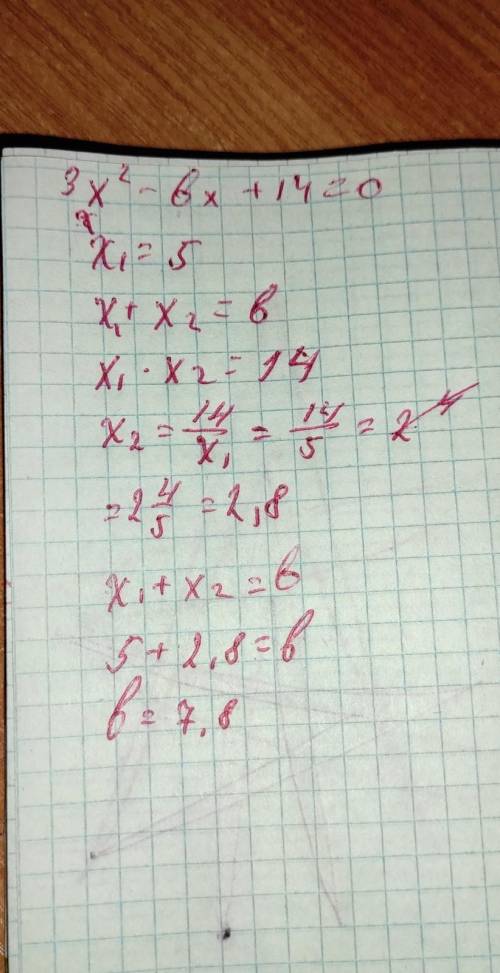 3x² - bx + 14 = 0
x₁ = 5
x₁ + x₂ = b
x₁ · x₂ = 14
x₂ = 14/x₁ = 14/5 = 2
= 2 4/5 = 2,8
x₁ + x₂ = b
5 + 2,8 = b
b = 7,8